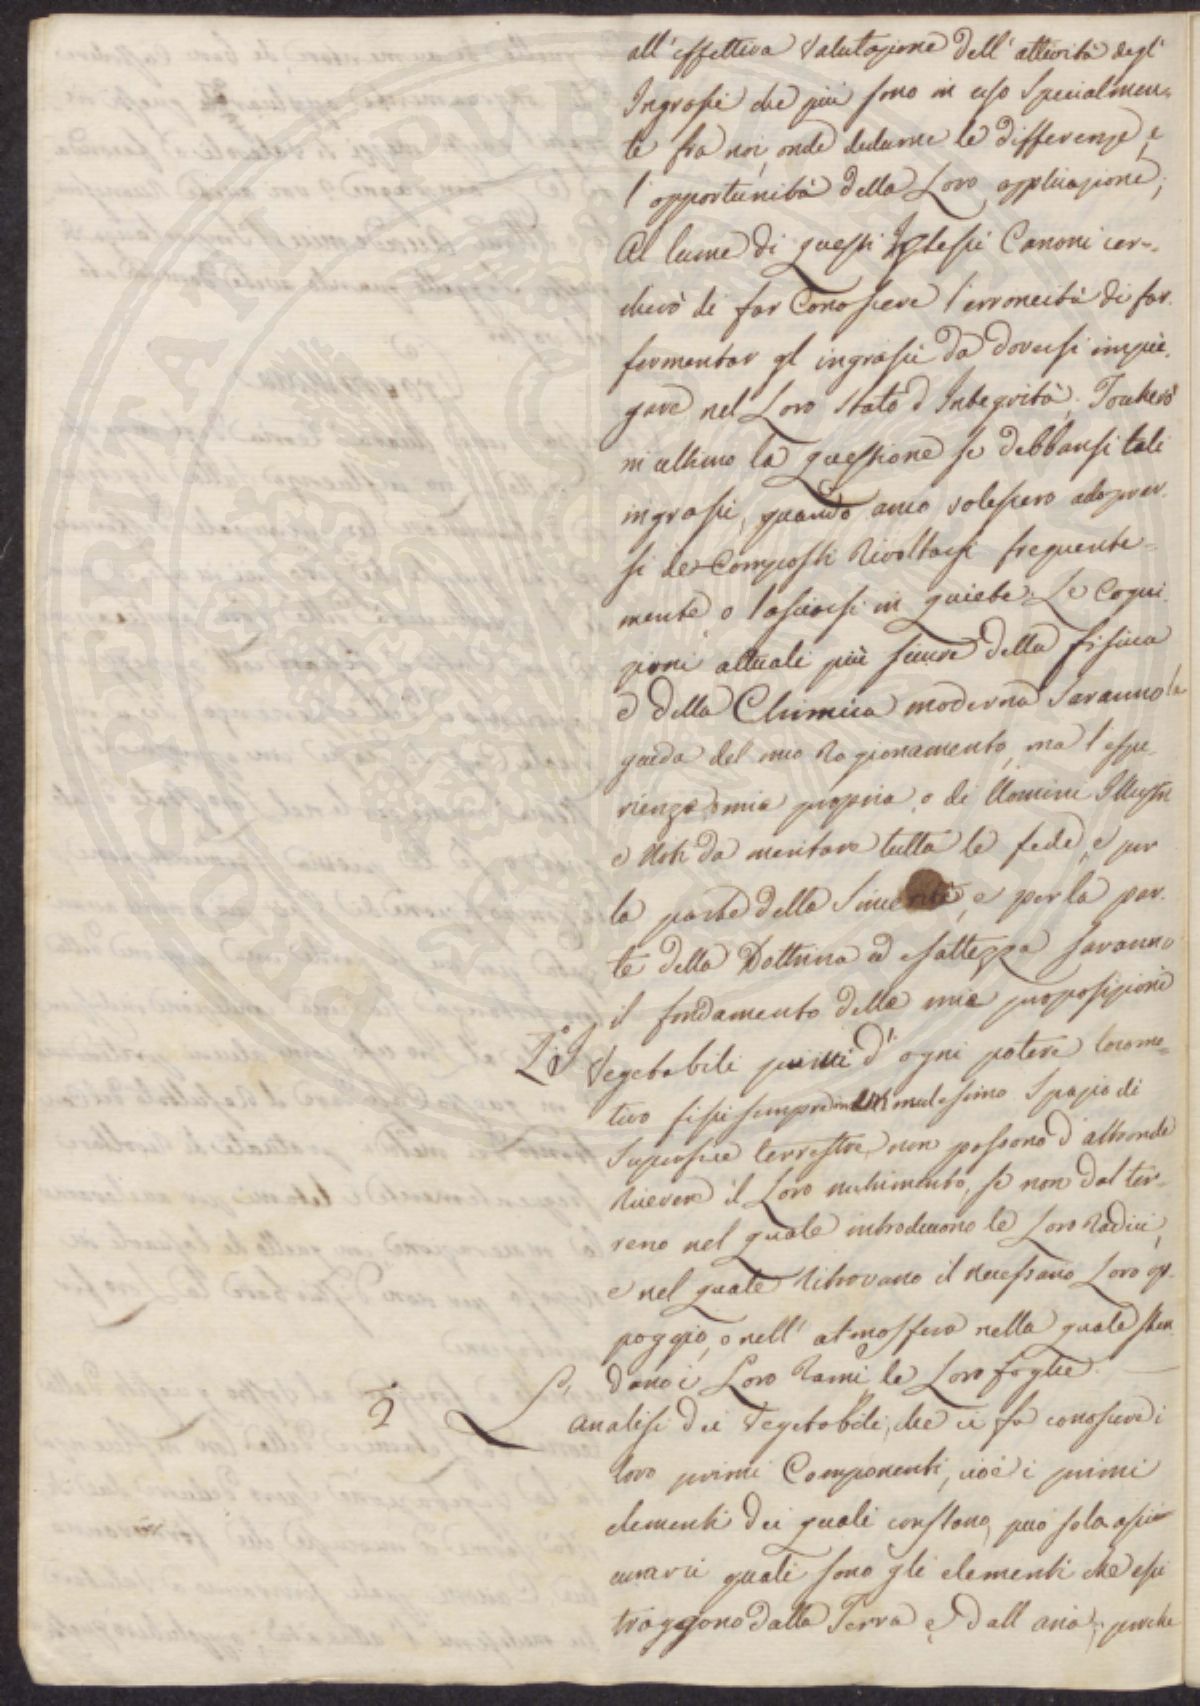 all'effettiva valutazione dell'attività degl'
Ingrassi che più sono in uso specialmen-
te fra noi, onde dedurne le differenze, e
l'opportunità della Loro applicazione;
Al lume di questi stessi Canoni cer-
cherò di far Conoscere l'erroneità di far
fermentar gl'ingrassi da doversi impie-
gare nel Loro stato d'Integrità; Toccherò
in ultimo la questione se debbansi tali
ingrassi, quando anco volessero adoprar-
si decomposti Rivoltarsi frequente-
mente o lasciarsi in quiete. Le Cogni-
zioni attuali più sicure della fisica
e della Chimica moderna saranno la
guida del mio Ragionamento, ma l'espe-
rienza o mia propria, o di Uomini Illustri
e Noti da meritare tutta la fede, e per
la parte della Sincerità, e per la par-
te della Dottrina ed esattezza saranno
il fondamento delle mie proposizioni
I Vegetabili privi d'ogni potere locomo-
tivo fissi sempre in un medesimo Spazio di
Superficie terrestre, non possono d'altronde
Ricevere il Loro nutrimento, se non dal ter-
reno nel quale introducono le Loro Radici,
e nel quale Ritrovano il necessario Loro ap-
poggio, o nell'atmosfera nella quale sten-
dono i Loro Rami, le Loro foglie.
2 L'analisi dei Vegetabili, che ci fa conoscere i
loro primi Componenti, cioè i primi
elementi dei quali constano, può sola assi-
curarci quali sono gli elementi che essi
traggono dalla Terra e dall'aria; perchè